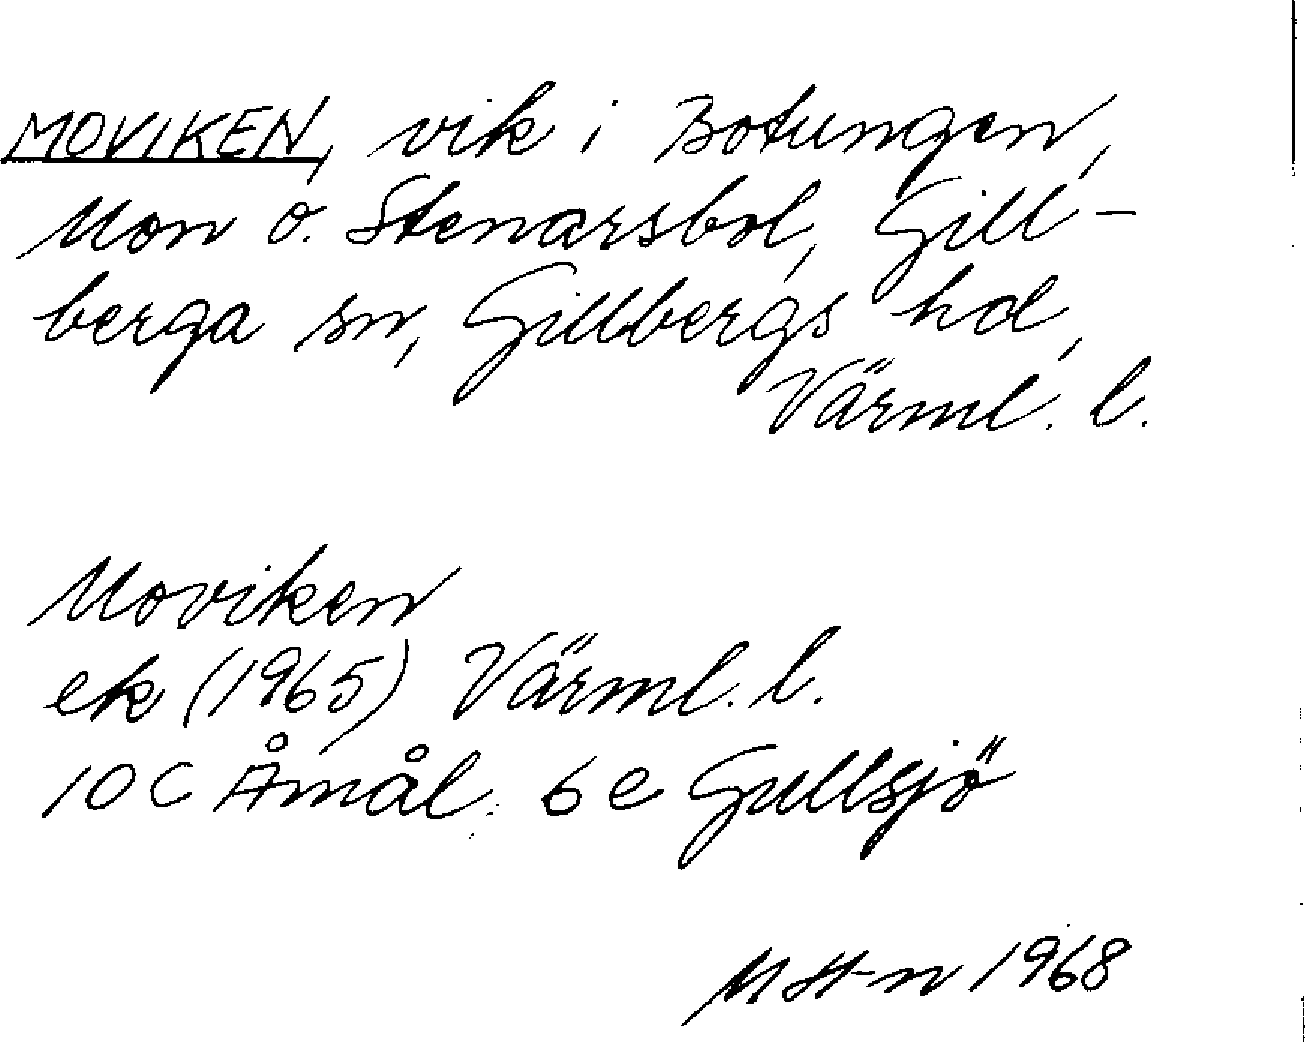 MOVIKEN, vik i Botungen,
Mon o. Stenarsbol, Gill-
berga sn, Gillbergs hd,
Värml. l.
Moviken
ek (1965) Värml. l.
10 C Åmål: 6 e Gullsjö
MH-n 1968